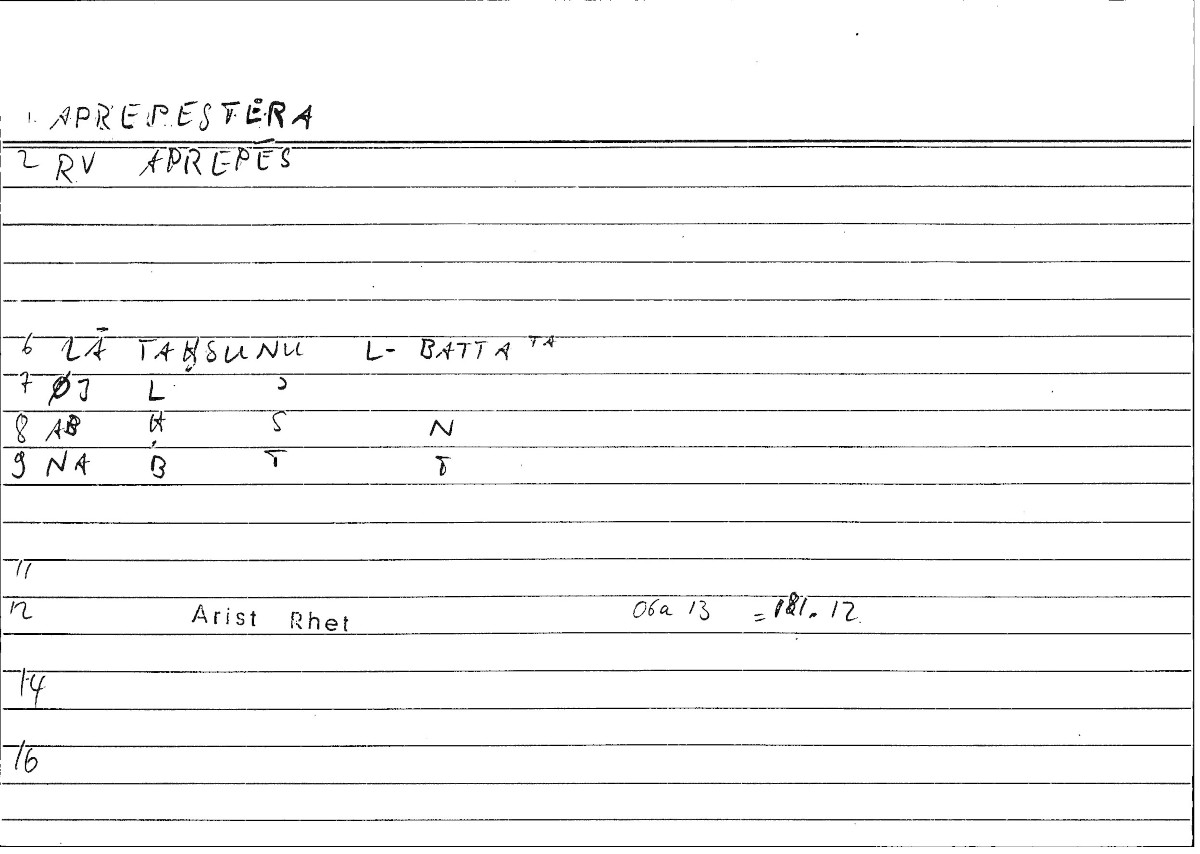 1. APREPESTĒRA
2 RV APREPĒS
6 LĀ TAḤSUNU L- BATTA TA
7 ØJ L ʾ
8 AB Ḥ S N
9 NA B T T
11
12 Arist Rhet 06a 13 = 181. 12
14
16